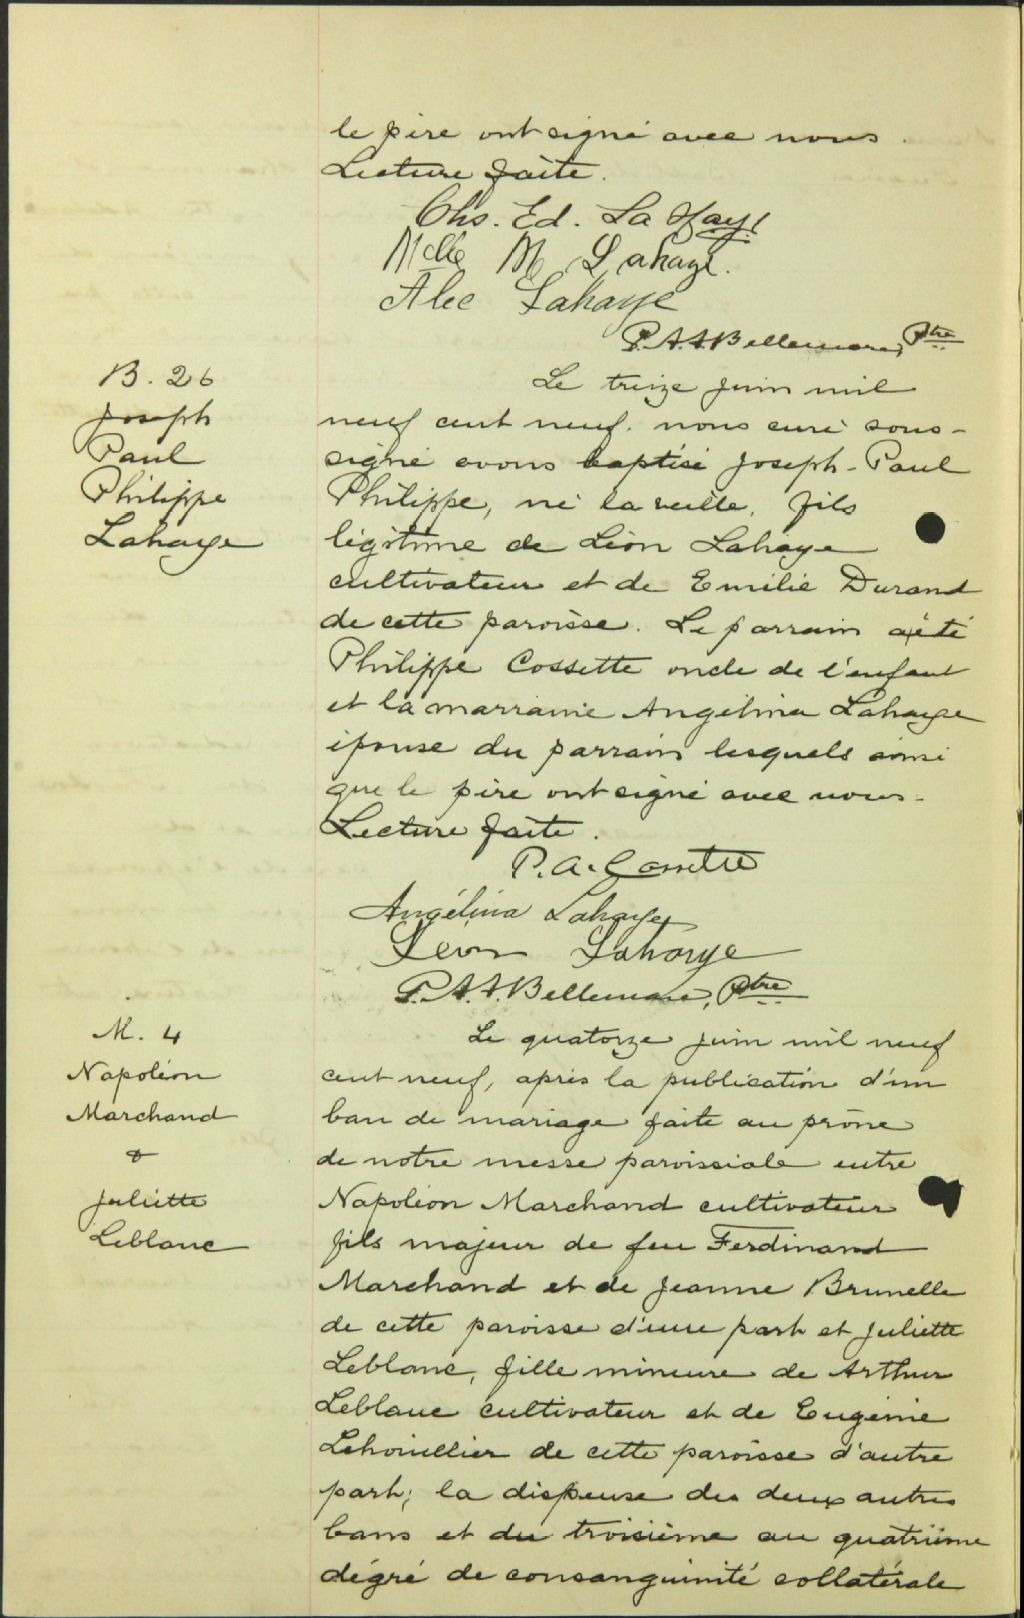 le père ont signé avec nous.
Lecture faite.
Chs. Ed. La Haye
Melle M Lahaye.
Alec Lahaye
P.A.A.Bellemare, Ptre
B. 26
Joseph
Paul
Philippe
Lahaye
Le treize juin mil
neuf cent neuf. nous curé sous-
signé avons baptisé Joseph-Paul
Philippe, né la veille, fils
légitime de Léon Lahaye
cultivateur et de Emilie Durand
de cette paroisse. Le parrain a été
Philippe Cossette oncle de l'enfant
et la marraine Angélina Lahaye
épouse du parrain lesquels ainsi
que le père ont signé avec nous.
Lecture faite.
P.A. Cossette
Angélina Lahaye
Léon Lahaye
P.A.A.Bellemare, Ptre
M. 4
Napoléon
Marchand
&
Juliette
Leblanc
Le quatorze juin mil neuf
cent neuf, après la publication d'un
ban de mariage faite au prône
de notre messe paroissiale entre
Napoléon Marchand cultivateur
fils majeur de feu Ferdinand
Marchand et de Jeanne Brunelle
de cette paroisse d'une part et Juliette
Leblanc, fille mineure de Arthur
Leblanc cultivateur et de Eugénie
Lehouillier de cette paroisse d'autre
part; la dispense des deux autres
bans et du troisième au quatrième
dégré de consanguinité collatérale